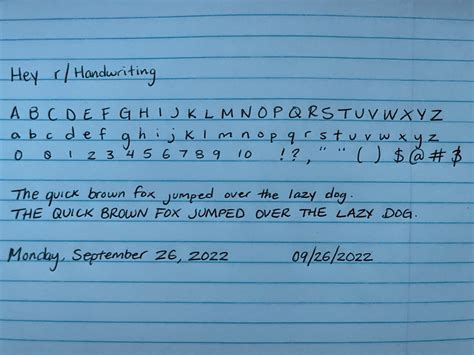 Hey r/Handwriting
A B C D E F G H I J K L M N O P Q R S T U V W X Y Z
a b c d e f g h i j k l m n o p q r s t u v w x y z
0 0 1 2 3 4 5 6 7 8 9 10 ! ? , " " ( ) $ @ # $
The quick brown fox jumped over the lazy dog.
THE QUICK BROWN FOX JUMPED OVER THE LAZY DOG.
Monday, September 26, 2022 09/26/2022